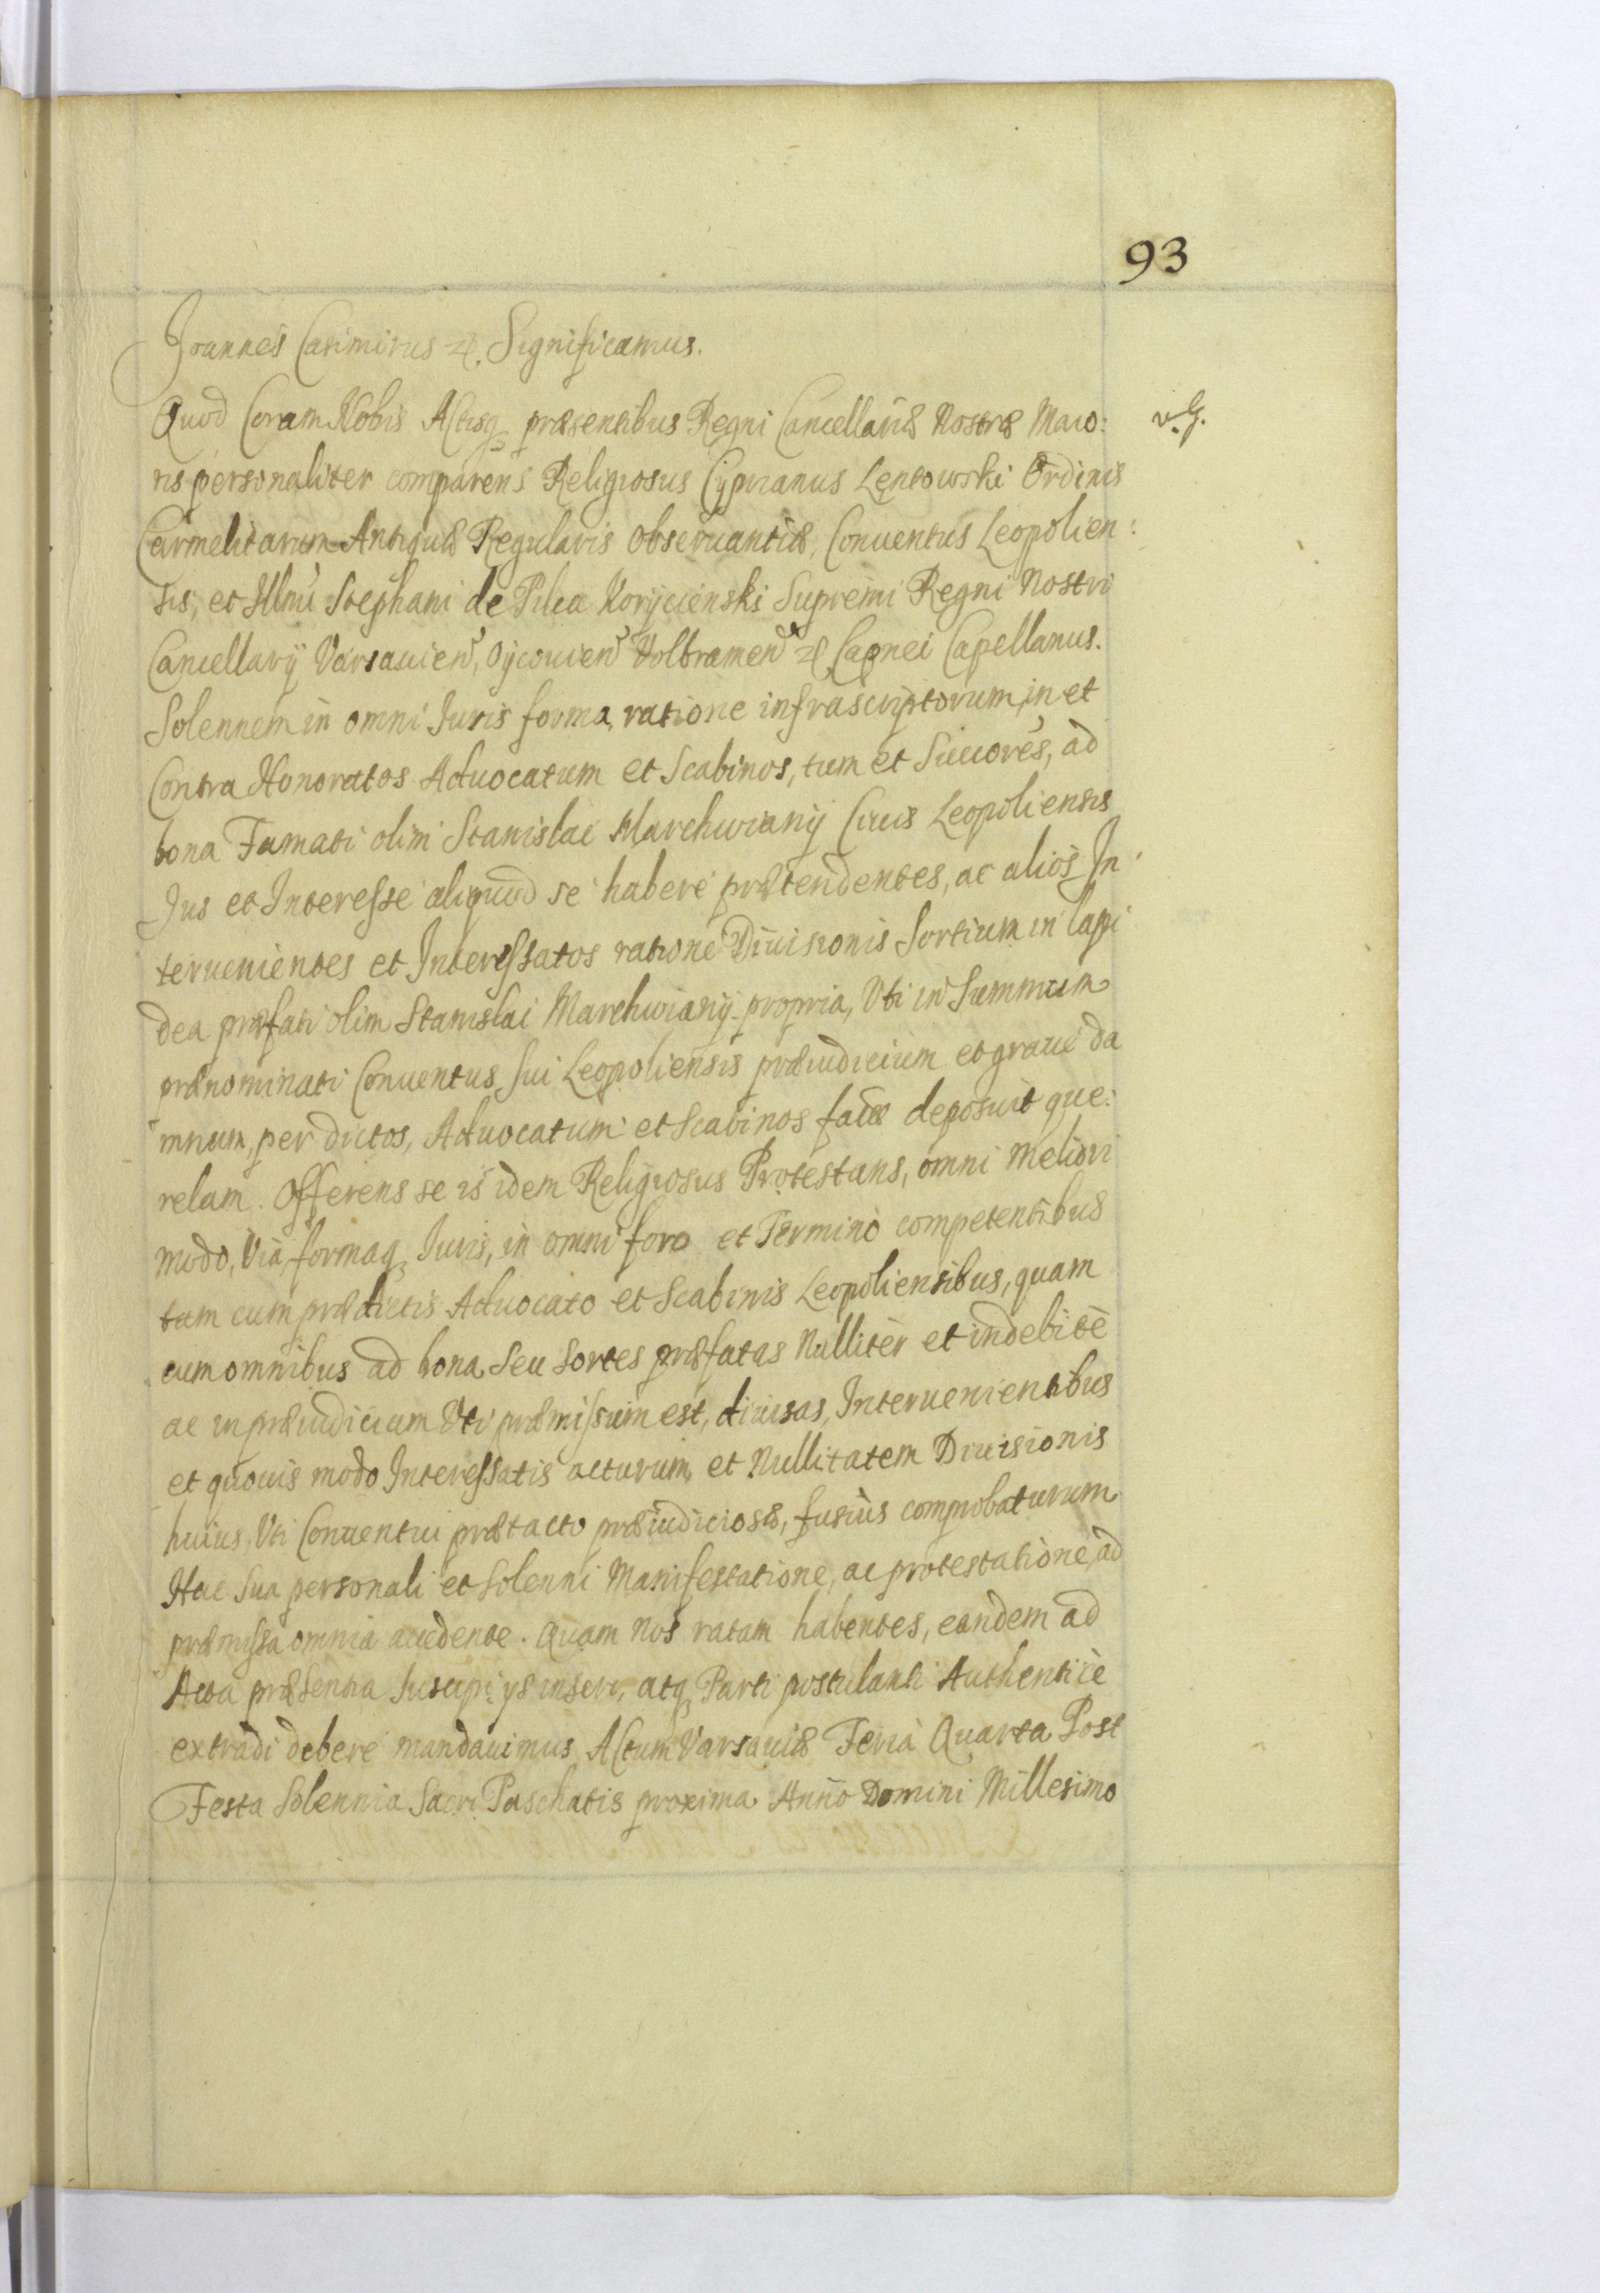 93
Joannes Casimirus etc. Significamus.
Quod Coram Nobis Actisq præsentibus Regni Cancellariæ Nostræ Maio:
v. G.
ris personaliter comparens Religiosus Cyprianus Lentowski Ordinis
Carmelitarum Antiquæ Regularis Obseruantiæ, Conuentus Leopolien:
sis, et Illmi Stephani de Pilca Korycienski Supremi Regni Nostri
Cancellarij Varsauien, Oÿcouien Volbramen etc Capnei Capellanus.
Solennem in omni Iuris forma, ratione infrascriptorum, in et
Contra Honoratos Aduocatum et Scabinos, tum et Succores, ad
bona Famati olim Stanislai Marchwianÿ Ciuis Leopoliensis
Jus et Interesse aliquod se habere prætendentes, ac alios In
teruenientes et Interessatos ratione Diuisionis Sortium in lapi
dea præfati olim Stanislai Marchwianÿ propria, Vti in Summum
prænominati Conuentus sui Leopoliensis præiudicium et graue da
mnum, per dictos, Aduocatum et Scabinos factæ deposuit que:
relam. Offerens se is idem Religiosus Protestans, omni meliori
modo, Via, formaq Iuris, in omni foro et Termino competentibus
tam cum prædictis Aduocato et Scabinis Leopoliensibus, quam
cum omnibus ad bona seu sortes præfatas Nulliter et indebitè
ac in præiudicium Vti præmissum est, diuisas, Interuenientibus
et quouis modo Interessatis acturum, et Nullitatem Diuisionis
huius, Vti Conuentui prætacto præiudiciosæ, fusius comprobaturum
Hac sua personali et solenni Manifestatione, ac protestatione, ad
præmissa omnia accedente. Quam nos ratam habentes, eandem ad
Acta præsentia suscipi, ÿs inseri, atq Parti postulanti Authenticè
extradi debere mandauimus. Actum Varsauiæ Feria Quarta Post
Festa Solennia Sacri Paschatis proxima Anno Domini Millesimo